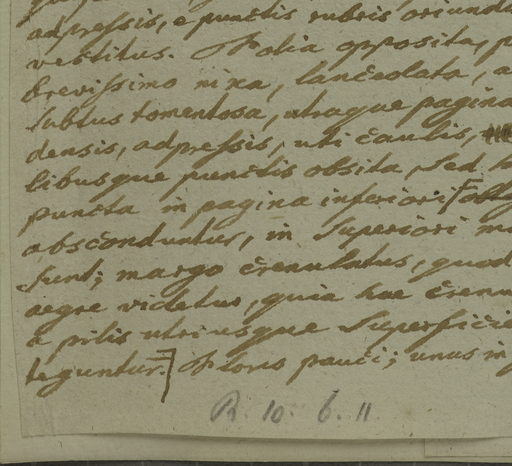 adpressis, e punctis rubris oriund
vestitus. Folia opposita, p
brevissimo nixa, lanceolata, a
subtus tomentosa, utraque pagina
densis, adpressis, uti caulis,
libusque punctis obsita, sed h
puncta in pagina inferiori
absconduntur, in superiori ma
sunt; margo crenulatus, quod
aegre videtur, quia hae crenu
a pilis utriusque superficie
teguntur.] Flores pauci; unus in
R. 10. 6. 11